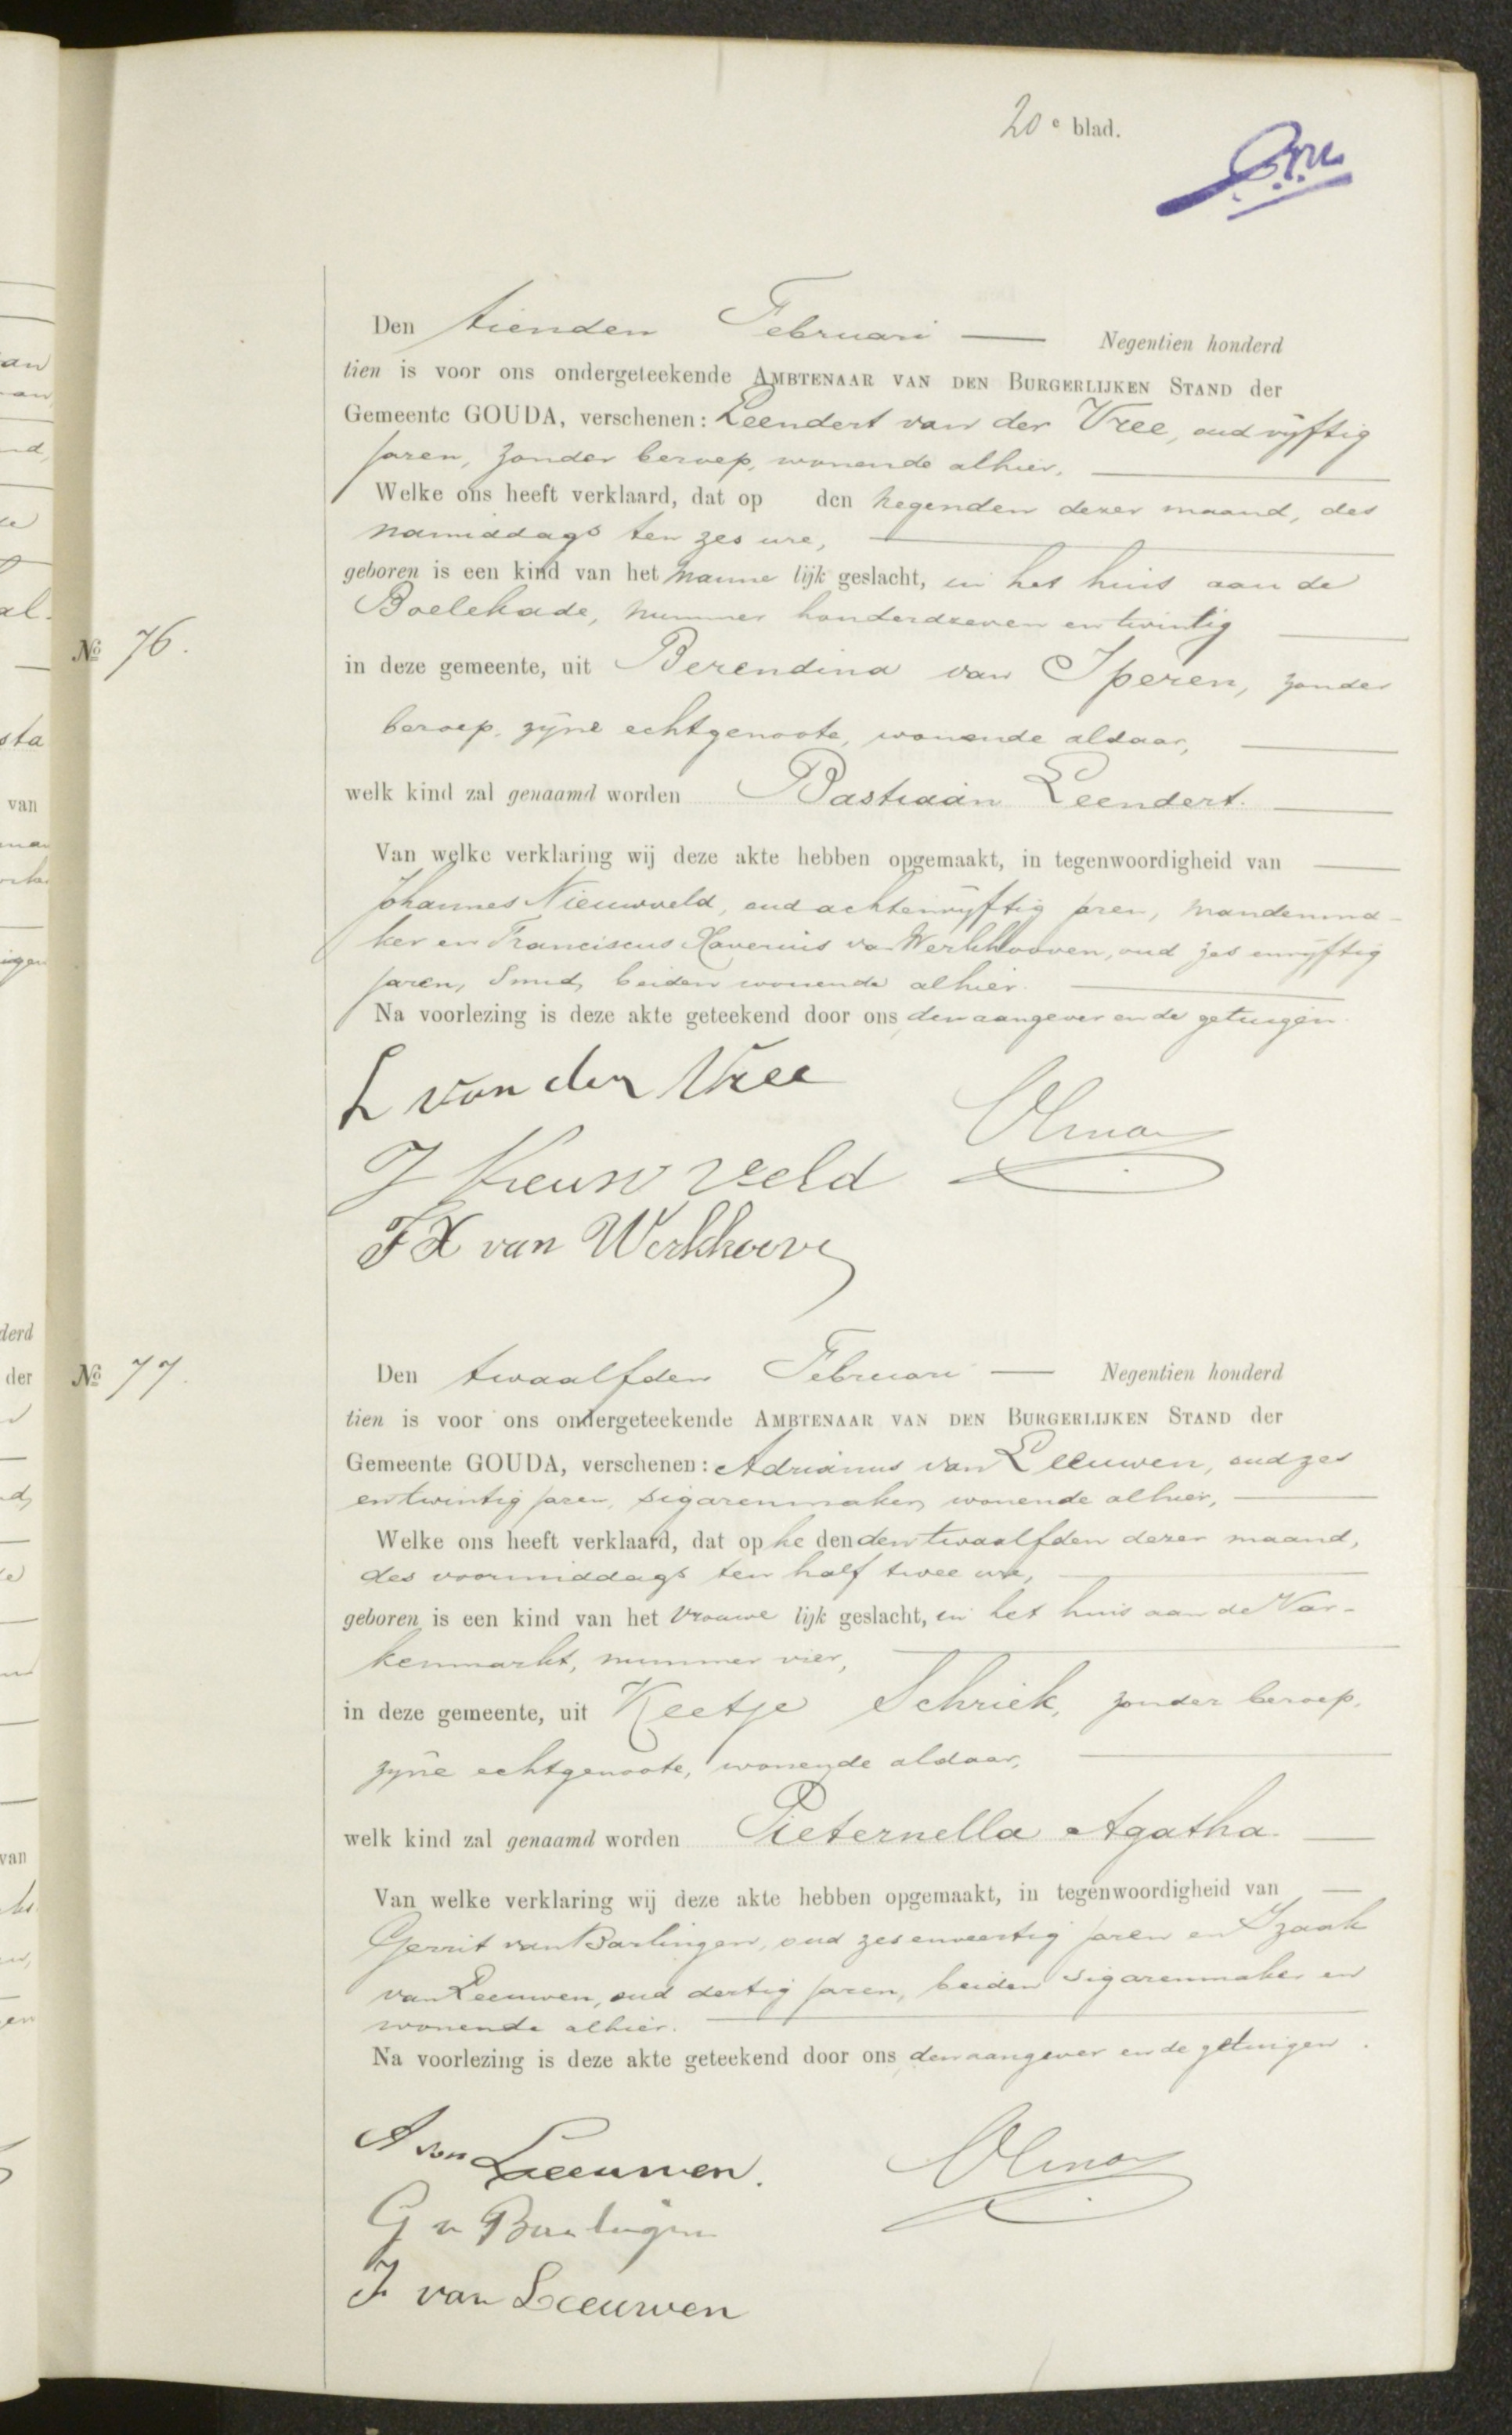 20e blad.
Den tienden Februari — Negentien honderd
tien is voor ons ondergeteekende AMBTENAAR VAN DEN BURGERLIJKEN STAND der
Gemeente GOUDA, verschenen: Leendert van der Vree, oud vyftig
jaren, zonder beroep, wonende alhier,
Welke ons heeft verklaard, dat op den negenden dezer maand, des
namiddags ten zes ure,
geboren is een kind van het manne lijk geslacht, in het huis aan de
Boelekade, nummer honderdzeven en twintig
Nº 76.
in deze gemeente, uit Berendina van Iperen, zonder
beroep, zyne echtgenoote, wonende aldaar,
welk kind zal genaamd worden Bastiaan Leendert.
Van welke verklaring wij deze akte hebben opgemaakt, in tegenwoordigheid van
Johannes Nieuwveld, oud achtenvyftig jaren, mandenma-
ker en Franciscus Xaverius van Werkhooven, oud zes envyftig
jaren, smid, beiden wonende alhier.
Na voorlezing is deze akte geteekend door ons, den aangever en de getuigen.
L van der Vree
J Nieuwveld
F X van Werkhoven
Nº 77.
Den twaalfden Februari — Negentien honderd
tien is voor ons ondergeteekende AMBTENAAR VAN DEN BURGERLIJKEN STAND der
Gemeente GOUDA, verschenen: Adrianus van Leeuwen, oud zes
entwintig jaren, sigarenmaker, wonende alhier,
Welke ons heeft verklaard, dat op he den den twaalfden dezer maand,
des voormiddags ten half twee ure,
geboren is een kind van het vrouwe lijk geslacht, in het huis aan de Var-
kenmarkt, nummer vier,
in deze gemeente, uit Keetje Schriek, zonder beroep,
zyne echtgenoote, wonende aldaar,
welk kind zal genaamd worden Pieternella Agatha.
Van welke verklaring wij deze akte hebben opgemaakt, in tegenwoordigheid van
Gerrit van Barlingen, oud zesenveertig jaren en Izaak
van Leeuwen, oud dertig jaren, beiden sigarenmaker en
wonende alhier.
Na voorlezing is deze akte geteekend door ons, den aangever en de getuigen.
A van Leeuwen.
G v Barlingen
I van Leeuwen